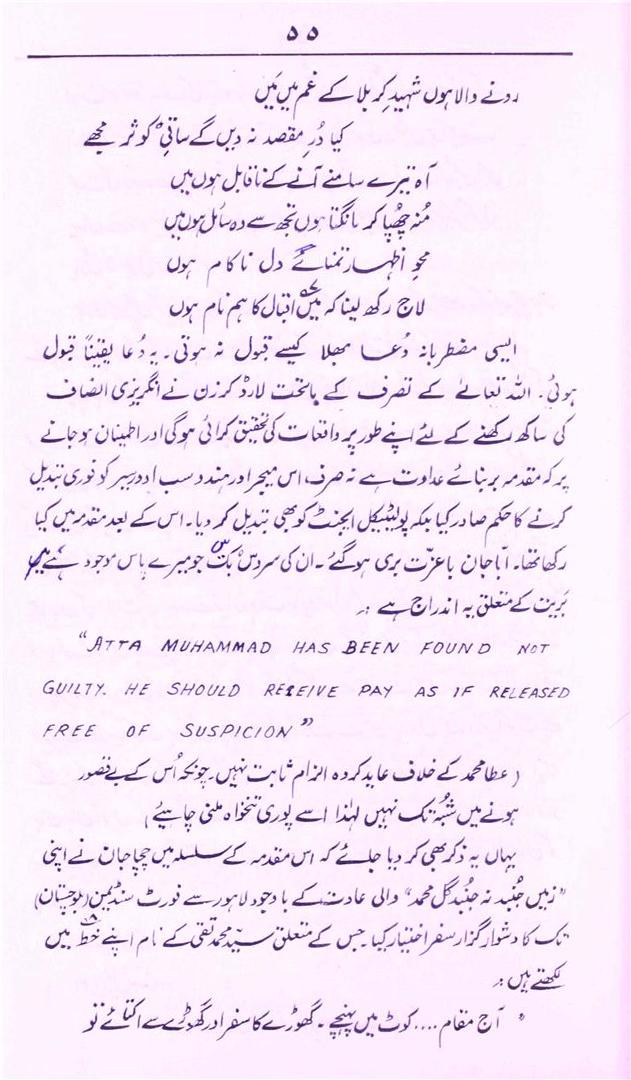 ۵۵
رونے والا ہوں شہیدِ کربلا کے غم میں مَیں
کیا دُرِ مقصد نہ دیں گے ساقیِ کوثر مجھے
آہ تیرے سامنے آنے کے ناقابل ہوں میں
مُنہ چھُپا کر مانگتا ہوں تجھ سے وہ سائل ہوں میں
محوِ اظہارِ تمنائے دلِ ناکام ہوں
لاج رکھ لینا کہ میں اقبال کا ہم نام ہوں
ایسی مضطربانہ دُعا بھلا کیسے قبول نہ ہوتی۔ یہ دُعا یقیناً قبول
ہوئی۔ اللہ تعالےٰ کے تصرف کے ماتحت لارڈ کرزن نے انگریزی انصاف
کی ساکھ رکھنے کے لئے اپنے طور پر واقعات کی تحقیق کرائی ہوگی اور اطمینان ہو جانے
پر کہ مقدمہ بربنائے عداوت ہے نہ صرف، اس میجر اور ہندو سب اوورسیر کو فوری تبدیل
کرنے کا حکم صادر کیا بلکہ پولیٹیکل ایجنٹ کو بھی تبدیل کر دیا۔ اس کے بعد مقدمہ میں کیا
رکھا تھا۔ ابّا جان باعزّت بری ہو گئے۔ ان کی سروس بک جو میرے پاس موجود ہے میں
بَریت کے متعلق یہ اندراج ہے :۔
"ATTA MUHAMMAD HAS BEEN FOUND NOT
GUILTY. HE SHOULD RECEIVE PAY AS IF RELEASED
FREE OF SUSPICION"
(عطا محمد کے خلاف عاید کردہ الزام ثابت نہیں۔ چونکہ اُس کے بے قصور
ہونے میں شُبہ تک نہیں لہٰذا اسے پوری تنخواہ ملنی چاہیئے)
یہاں یہ ذکر بھی کر دیا جائے کہ اس مقدمہ کے سلسلہ میں چچا جان نے اپنی
"زمیں جُنبد نہ جُنبد گل محمد" والی عادت کے باوجود لاہور سے فورٹ سنڈیمن (بلوچستان)
تک کا دشوار گزار سفر اختیار کیا جس کے متعلق سیّد محمد تقی کے نام اپنے خط میں
لکھتے ہیں :۔
" آج مقام .... کوٹ میں پہنچے۔ گھوڑے کا سفر اور گھوڑے سے اکتائے تو